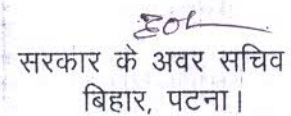 सरकार के अवर सचिव
बिहार, पटना।